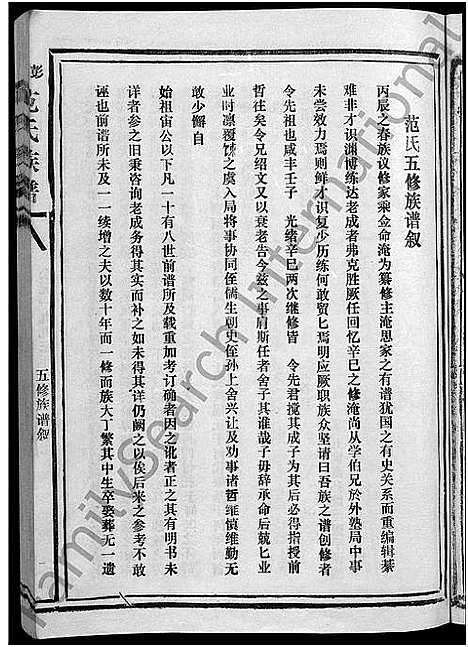 范氏五修族谱叙
丙辰之春族议修家乘佥命淹为纂修主淹思家之有谱犹国之有史关系而重编辑綦
难非才识渊博练达老成者弗克胜厥任回忆辛巳之修淹尚从学伯兄於外塾局中事
未尝效力焉则鲜才识复少历练何敢贸匕焉明应厥职族众坚请曰吾族之谱创修者
令先祖也咸丰壬子 光绪辛巳两次继修皆 令先君搅其成子为其后必得指授前
哲往矣令兄绍文又以衰老告今兹之事肩斯任者舍子其谁哉子毋辞承命后兢匕业
业时凛覆𫗧之虞入局将事协同侄儒生朝史侄孙上舍兴让及劝事诸哲维慎维勤无
敢少懈自
始祖宙公以下凡一十有八世前谱所及载重加考订确者因之讹者正之其有明书未
详者参之旧秉咨询老成务得其实而补之如未得其详仍阙之以俟后来之参考不敢
诬也前谱所未及一一续增之夫以数十年而一修而族大丁繁其中生卒娶葬无一遗
彭
范氏族谱
五修族谱叙
FamilySearch International